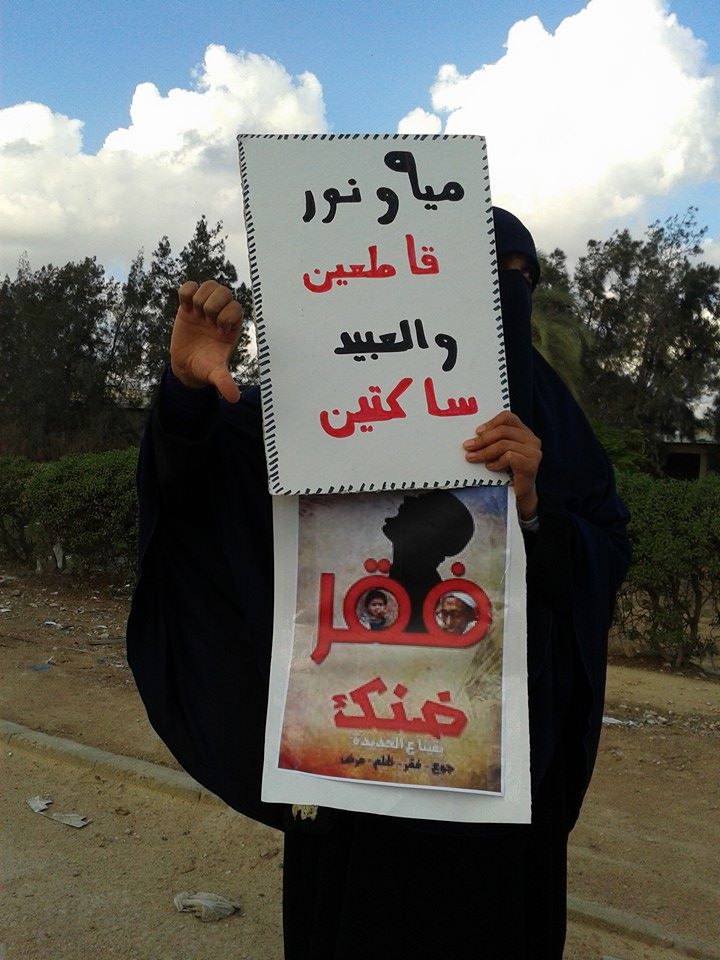 مياه ونور
قاطعين
والعبيد
ساكتين
فقر
ضنك
بقينا ع الحديدة
جوع - فقر - ظلم - مرض